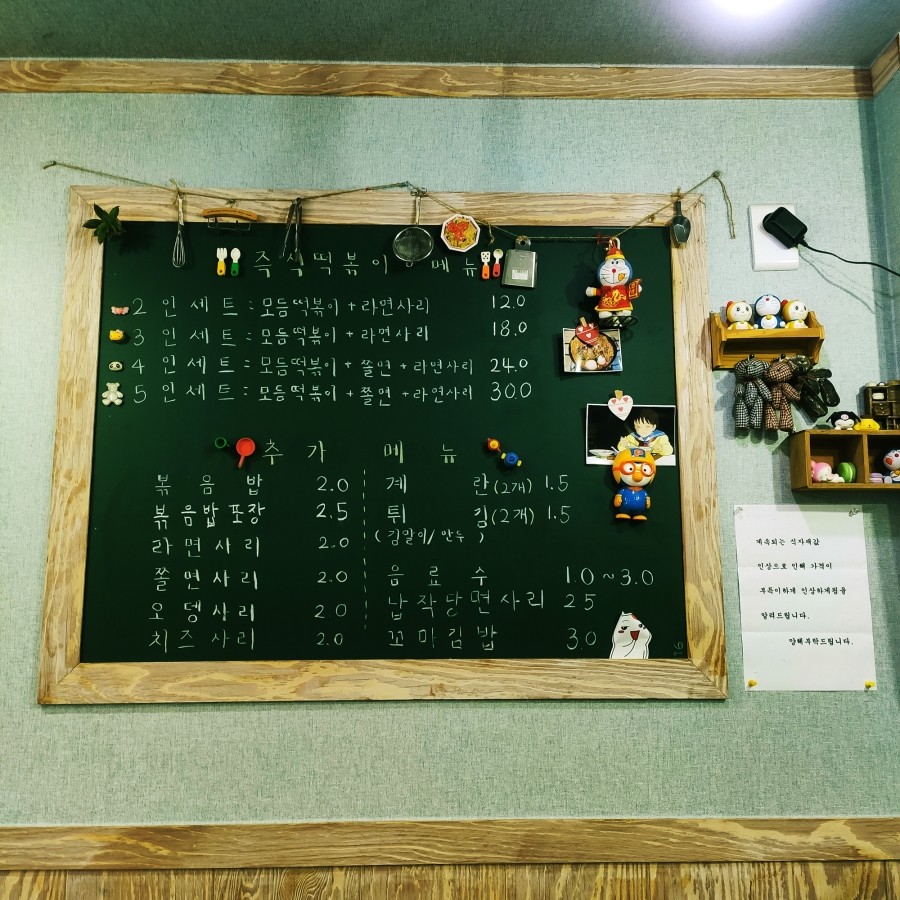 즉석떡볶이 메뉴
2인세트 : 모듬떡볶이 + 라면사리 12.0
3인세트 : 모듬떡볶이 + 라면사리 18.0
4인세트 : 모듬떡볶이 + 쫄면 + 라면사리 24.0
5인세트 : 모듬떡볶이 + 쫄면 + 라면사리 30.0
추가 메뉴
볶음밥 2.0
볶음밥포장 2.5
라면사리 2.0
쫄면사리 2.0
오뎅사리 2.0
치즈사리 2.0
계란(2개) 1.5
튀김(2개) 1.5
(김말이/만두)
음료수 1.0~3.0
납작당면사리 2.5
꼬마김밥 3.0
계속되는 식자재값
인상으로 인해 가격이
부득이하게 인상하게됨을
알려드립니다.
양해부탁드립니다.